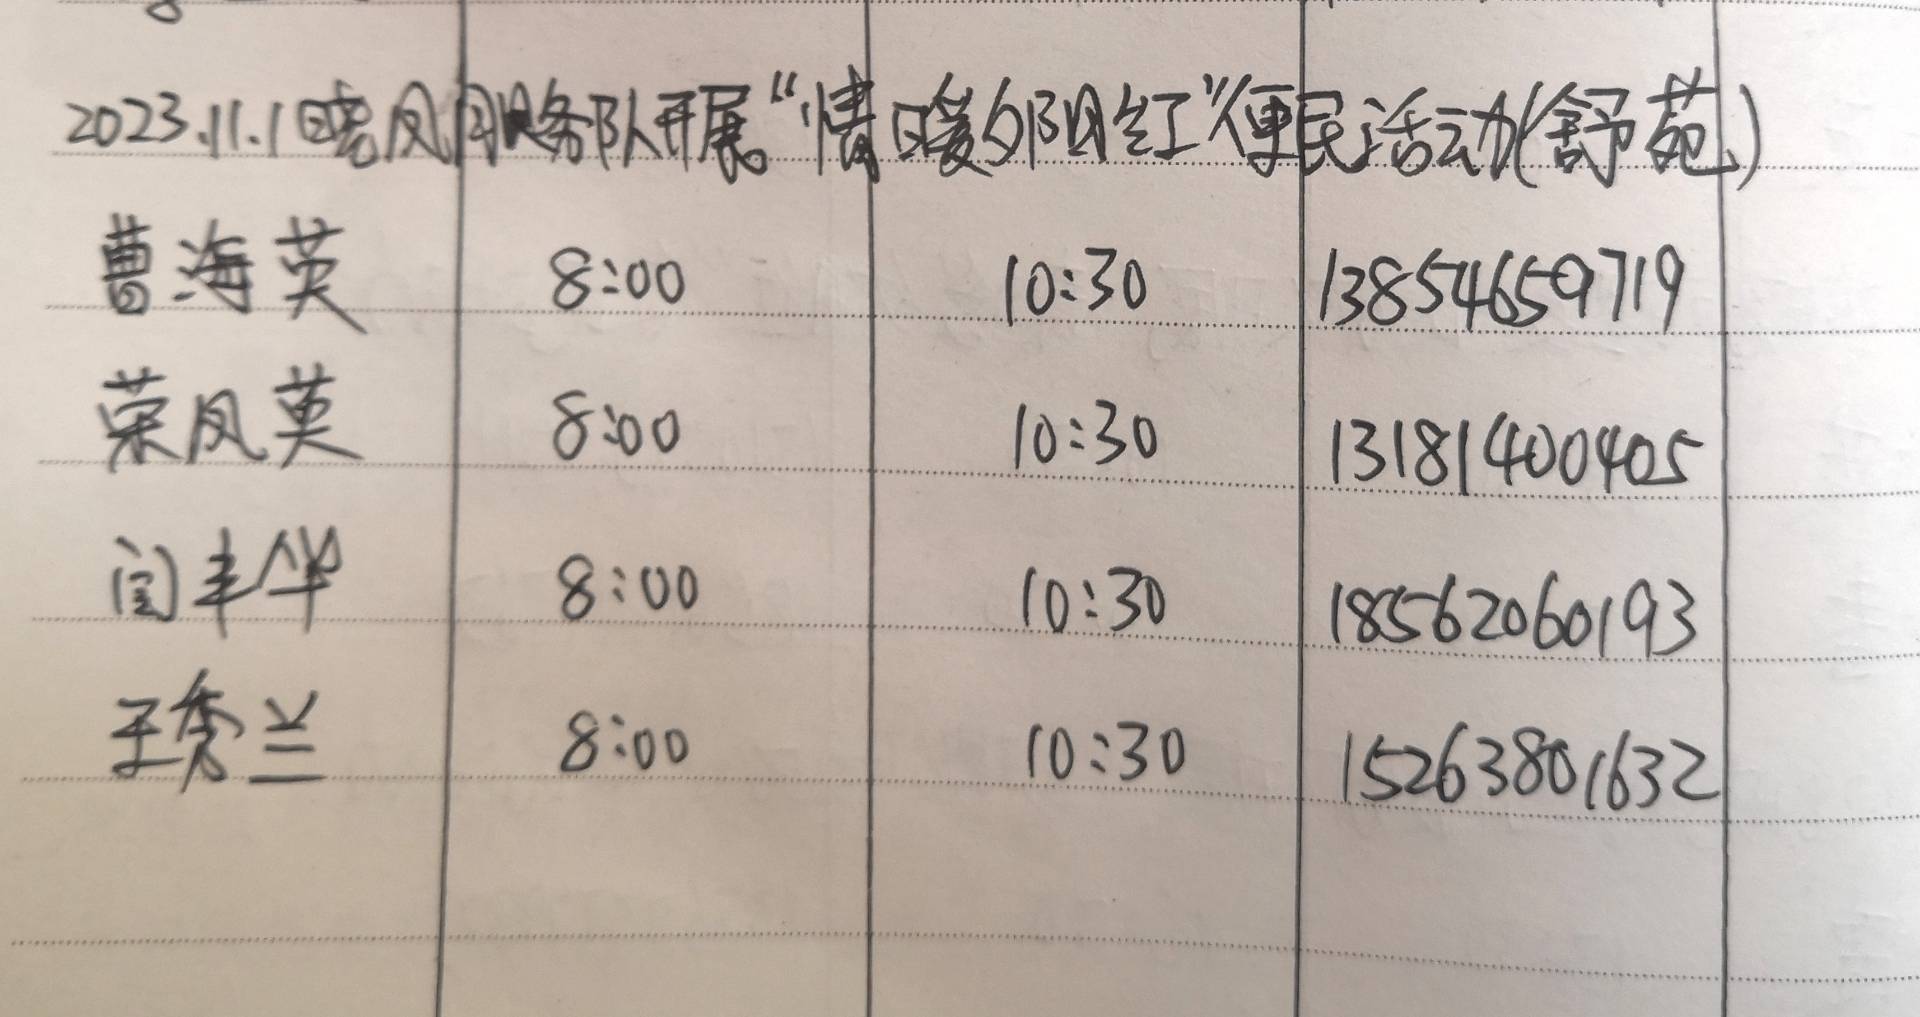 2023.11.1晓凤服务队开展“情暖夕阳红”便民活动(舒苑)
曹海英 8:00 10:30 13854659719
荣凤英 8:00 10:30 13181400405
闫丰华 8:00 10:30 18562060193
王秀兰 8:00 10:30 15263801632